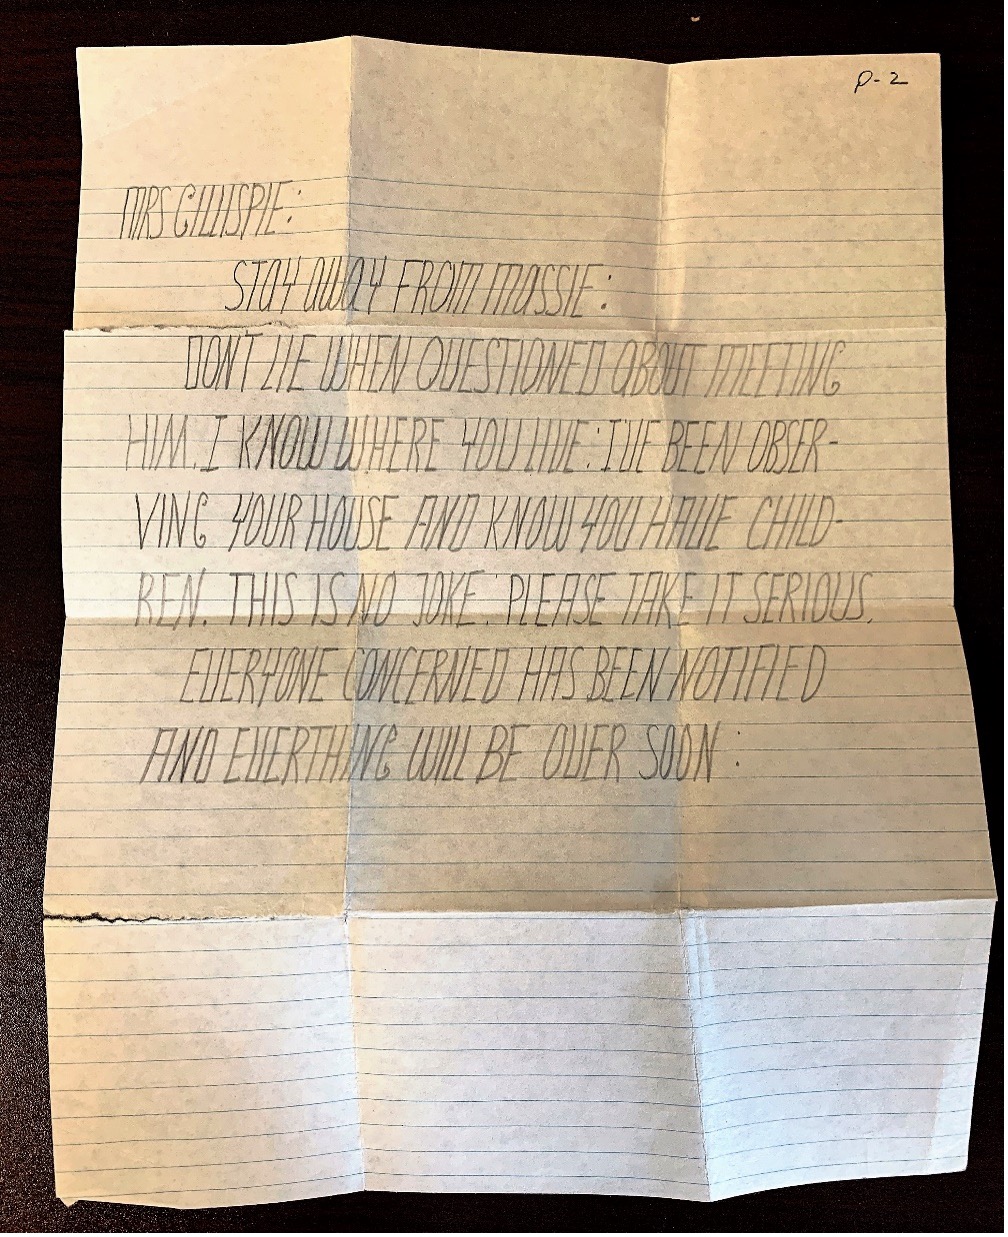 P-2
MRS GILLISPIE:
STAY AWAY FROM MASSIE:
DONT LIE WHEN QUESTIONED ABOUT MEETING
HIM. I KNOW WHERE YOU LIVE: I'VE BEEN OBSER-
VING YOUR HOUSE AND KNOW YOU HAVE CHILD-
REN. THIS IS NO JOKE. PLEASE TAKE IT SERIOUS.
EVERYONE CONCERNED HAS BEEN NOTIFIED
AND EVERTHING WILL BE OVER SOON :